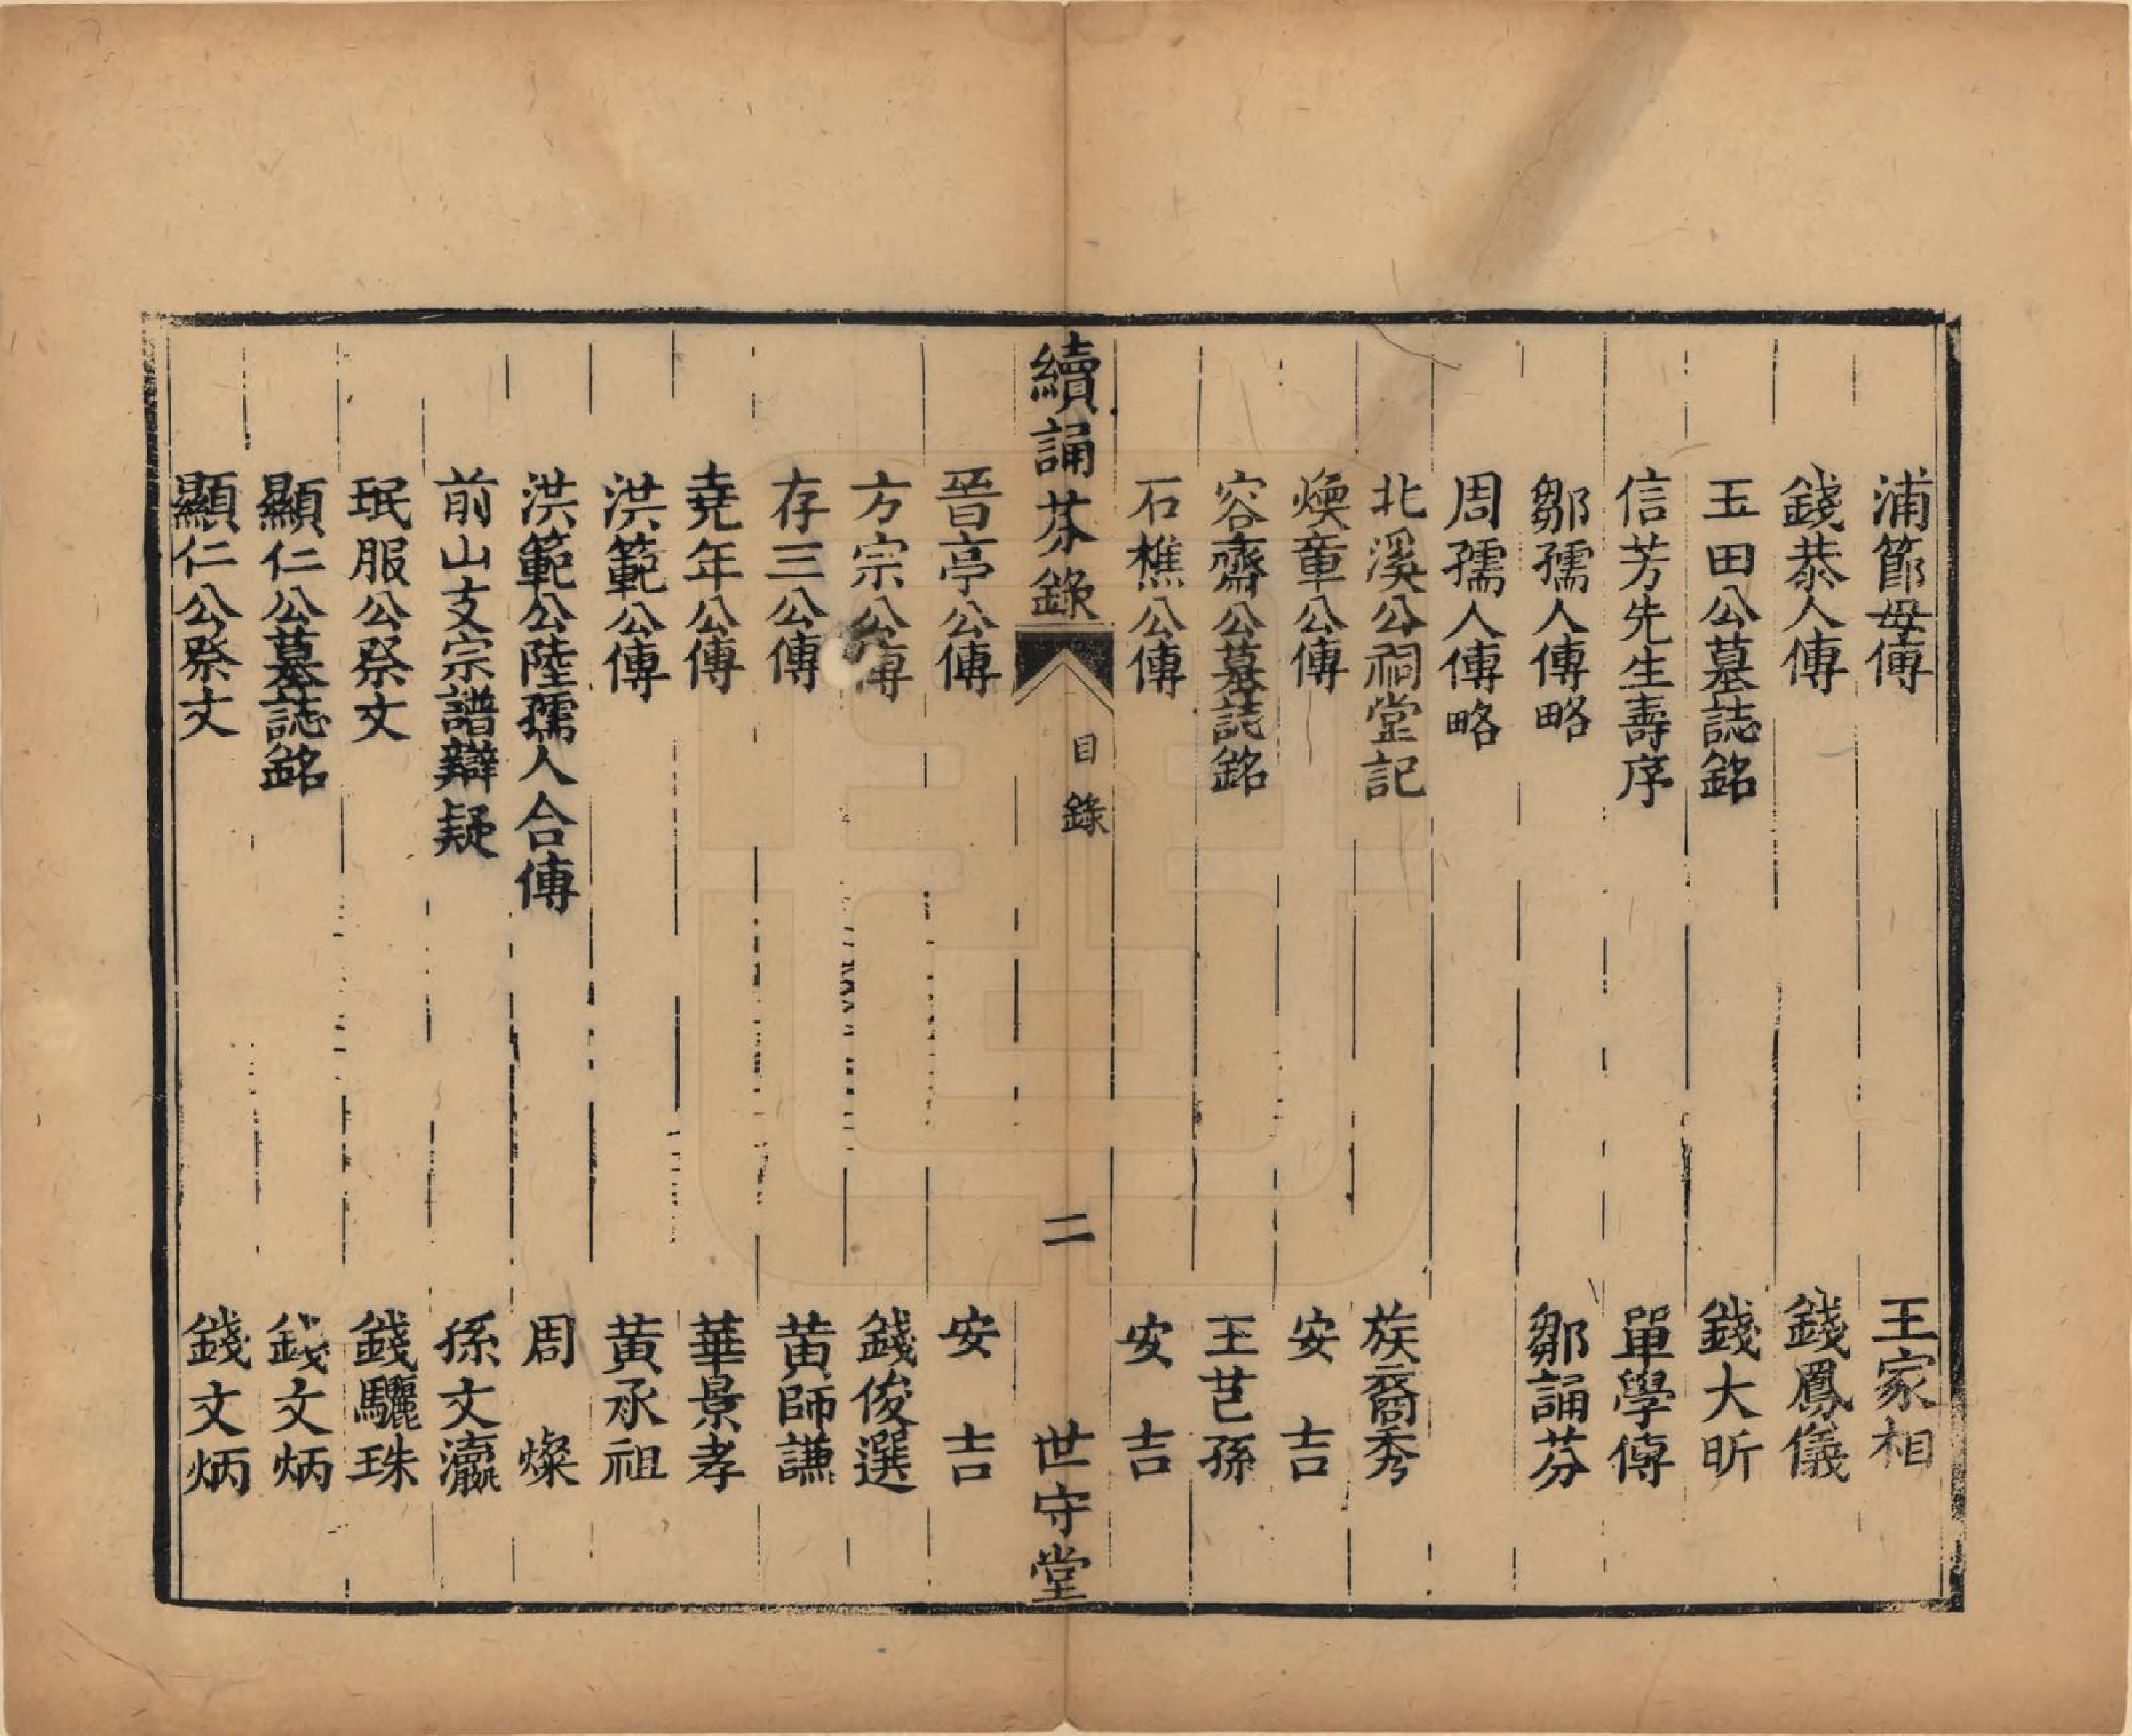 浦節母傳 王家相
錢恭人傳 錢鳳儀
玉田公墓誌銘 錢大昕
信芳先生壽序 單學傳
鄒孺人傳略 鄒誦芬
周孺人傳略
北溪公祠堂記 族裔秀
煥章公傳 安吉
容齋公墓誌銘 王芑孫
石樵公傳 安吉
續誦芬錄 目錄 二 世守堂
晉亭公傳 安吉
方宗公傳 錢俊選
存三公傳 黃師謙
堯年公傳 華景孝
洪範公傳 黃承祖
洪範公陸孺人合傳 周燦
前山支宗譜辯疑 孫文瀛
珉服公祭文 錢驪珠
顯仁公墓誌銘 錢文炳
顯仁公祭文 錢文炳